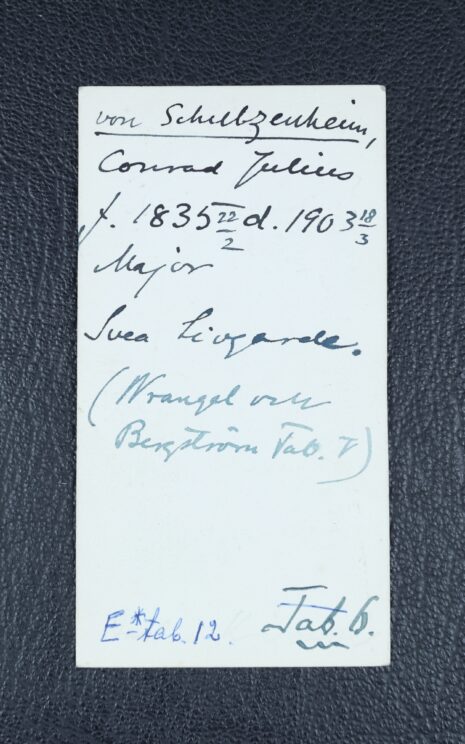 von Schultzenheim,
Conrad Julius
f. 1835 22/2 d. 1903 18/3
Major
Svea Livgarde.
(Wrangel och
Bergström Tab. 7)
E* tab. 12.
Tab. 6.